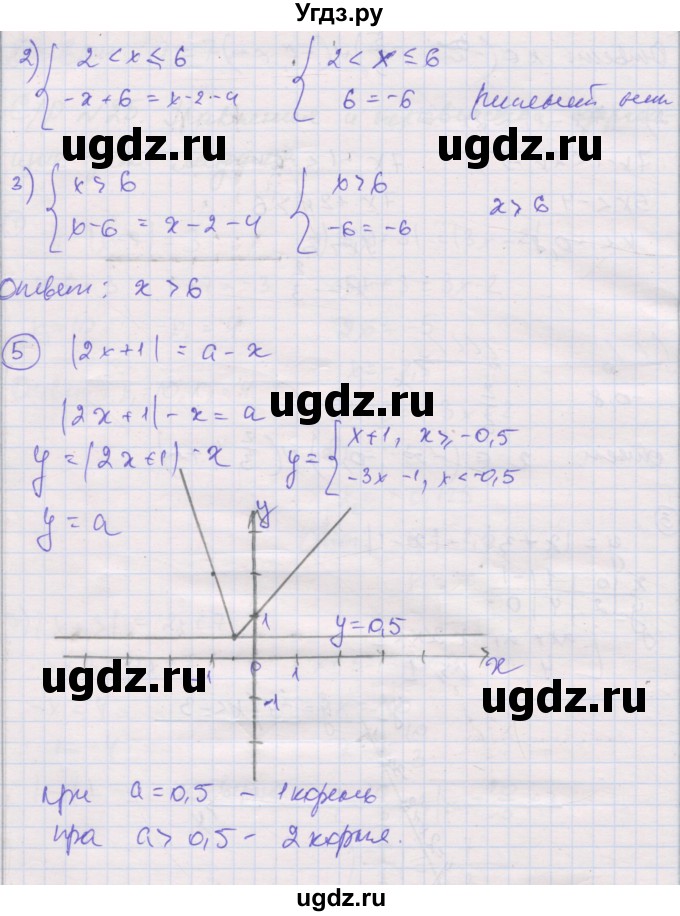 Угдз.ру
2) { 2 < x ≤ 6 { 2 < x ≤ 6
-x + 6 = x - 2 - 4 6 = -6 решений нет
ugdz.ru ugdz.ru
3) { x > 6 { x > 6 x > 6
x - 6 = x - 2 - 4 -6 = -6
Ответ: x > 6
5 |2x+1| = a - x
ugdz.ru
|2x+1| - x = a
y = |2x+1| - x y = { x+1, x ≥ -0,5
-3x - 1, x < -0,5
y = a
y
1 y = 0,5
-1 0 1 x
ugdz.ru ugdz.ru
-1
при a = 0,5 - 1 корень
при a > 0,5 - 2 корня.
ugdz.ru
ugdz.ru